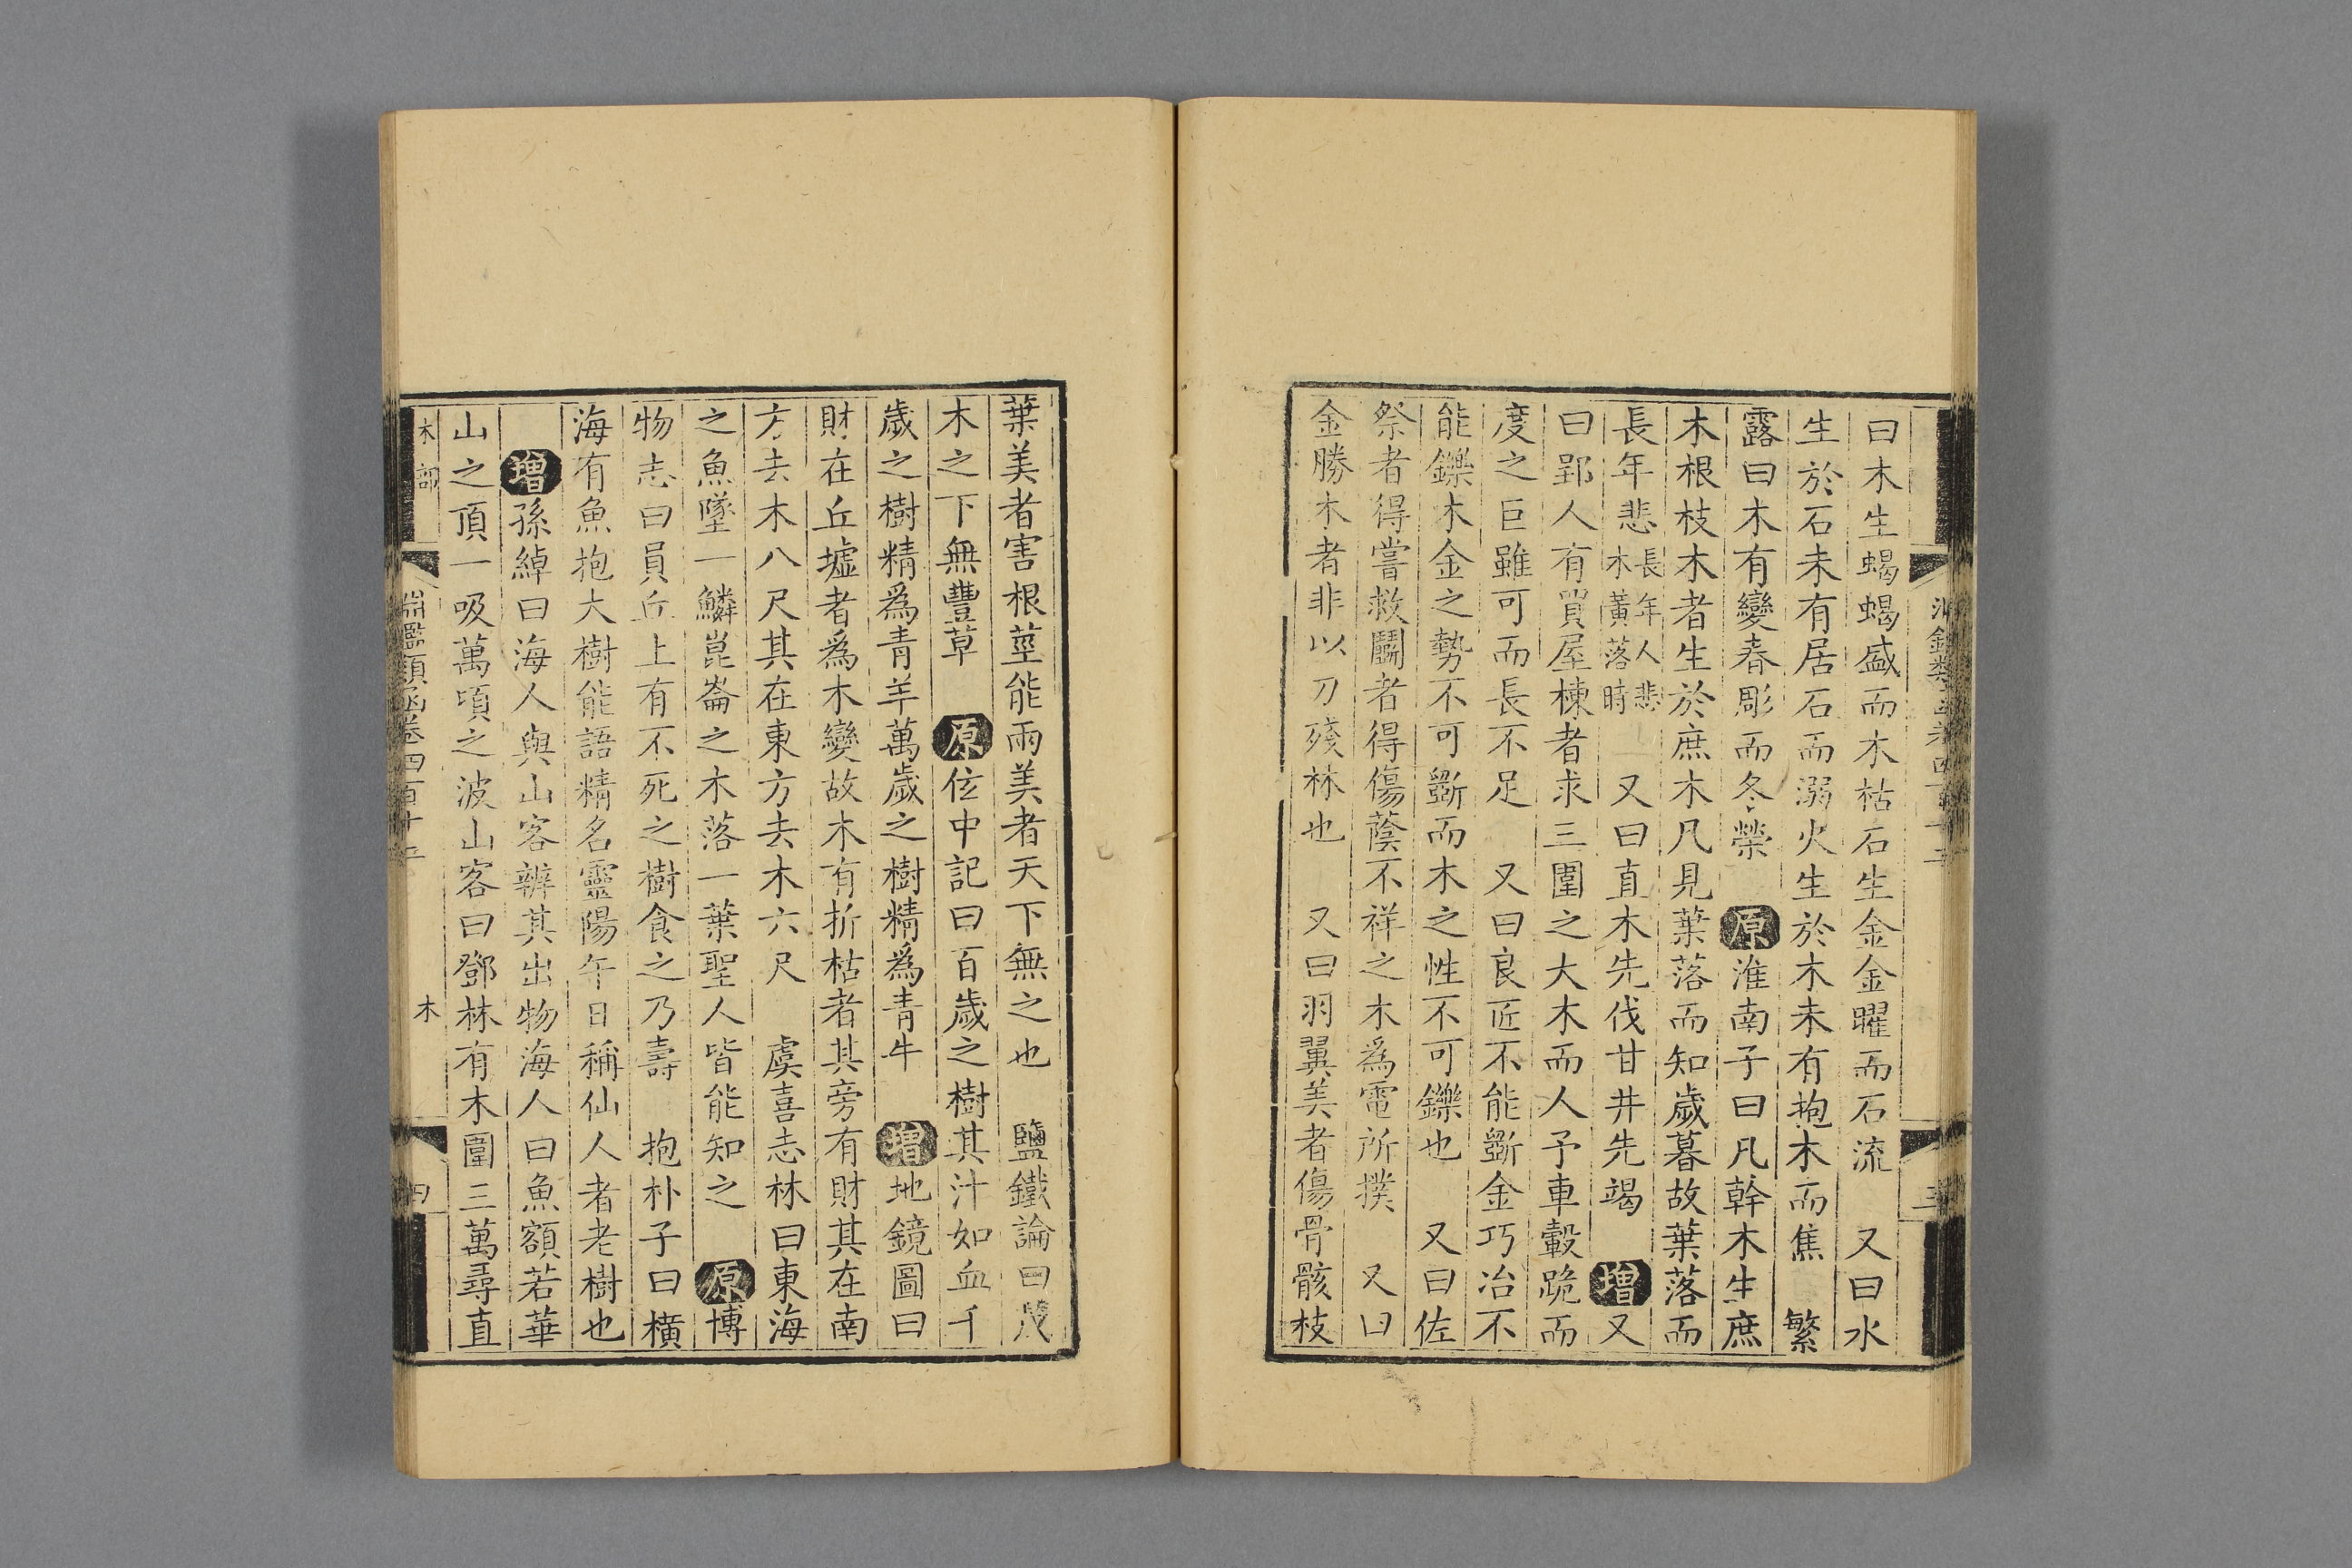 曰木生蝎蝎盛而木枯石生金金曜而石流　又曰水
生於石未有居石而溺火生於木未有抱木而焦　繁
露曰木有變春彫而冬榮　原淮南子曰凡幹木生庶
木根枝木者生於庶木凡見葉落而知歲暮故葉落而
長年悲長年人悲木黃落時　又曰直木先伐甘井先竭　增又
曰郢人有買屋棟者求三圍之大木而人予車轂跪而
度之巨雖可而長不足　又曰良匠不能斲金巧冶不
能鑠木金之勢不可斲而木之性不可鑠也　又曰佐
祭者得嘗救鬭者得傷蔭不祥之木爲電所撲　又曰
金勝木者非以刀殘林也　又曰羽翼美者傷骨骸枝
葉美者害根莖能兩美者天下無之也　鹽鐵論曰茂
木之下無豐草　原位中記曰百歲之樹其汁如血千
歲之樹精爲青羊萬歲之樹精爲青牛　增地鏡圖曰
財在丘墟者爲木變故木有折枯者其旁有財其在南
方去木八尺其在東方去木六尺　虞喜志林曰東海
之魚墜一鱗崑崙之木落一葉聖人皆能知之　原博
物志曰員丘上有不死之樹食之乃壽　抱朴子曰橫
海有魚抱大樹能語精名靈陽午日稱仙人者老樹也
增孫綽曰海人與山客辨其出物海人曰魚額若華
山之頂一吸萬頃之波山客曰鄧林有木圍三萬尋直
木部　淵鑑類函卷四百十　木　四